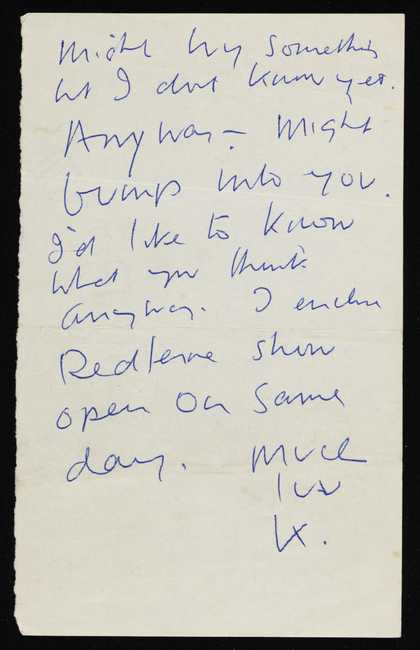 Might try something
but I dont know yet.
Anyway – Might
bump into you.
I'd like to know
what you think
anyway. I enclose
Redferne show
open on same
day. Much
luv